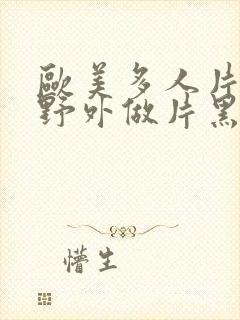 歐美多人片
野外做片黑
懵生